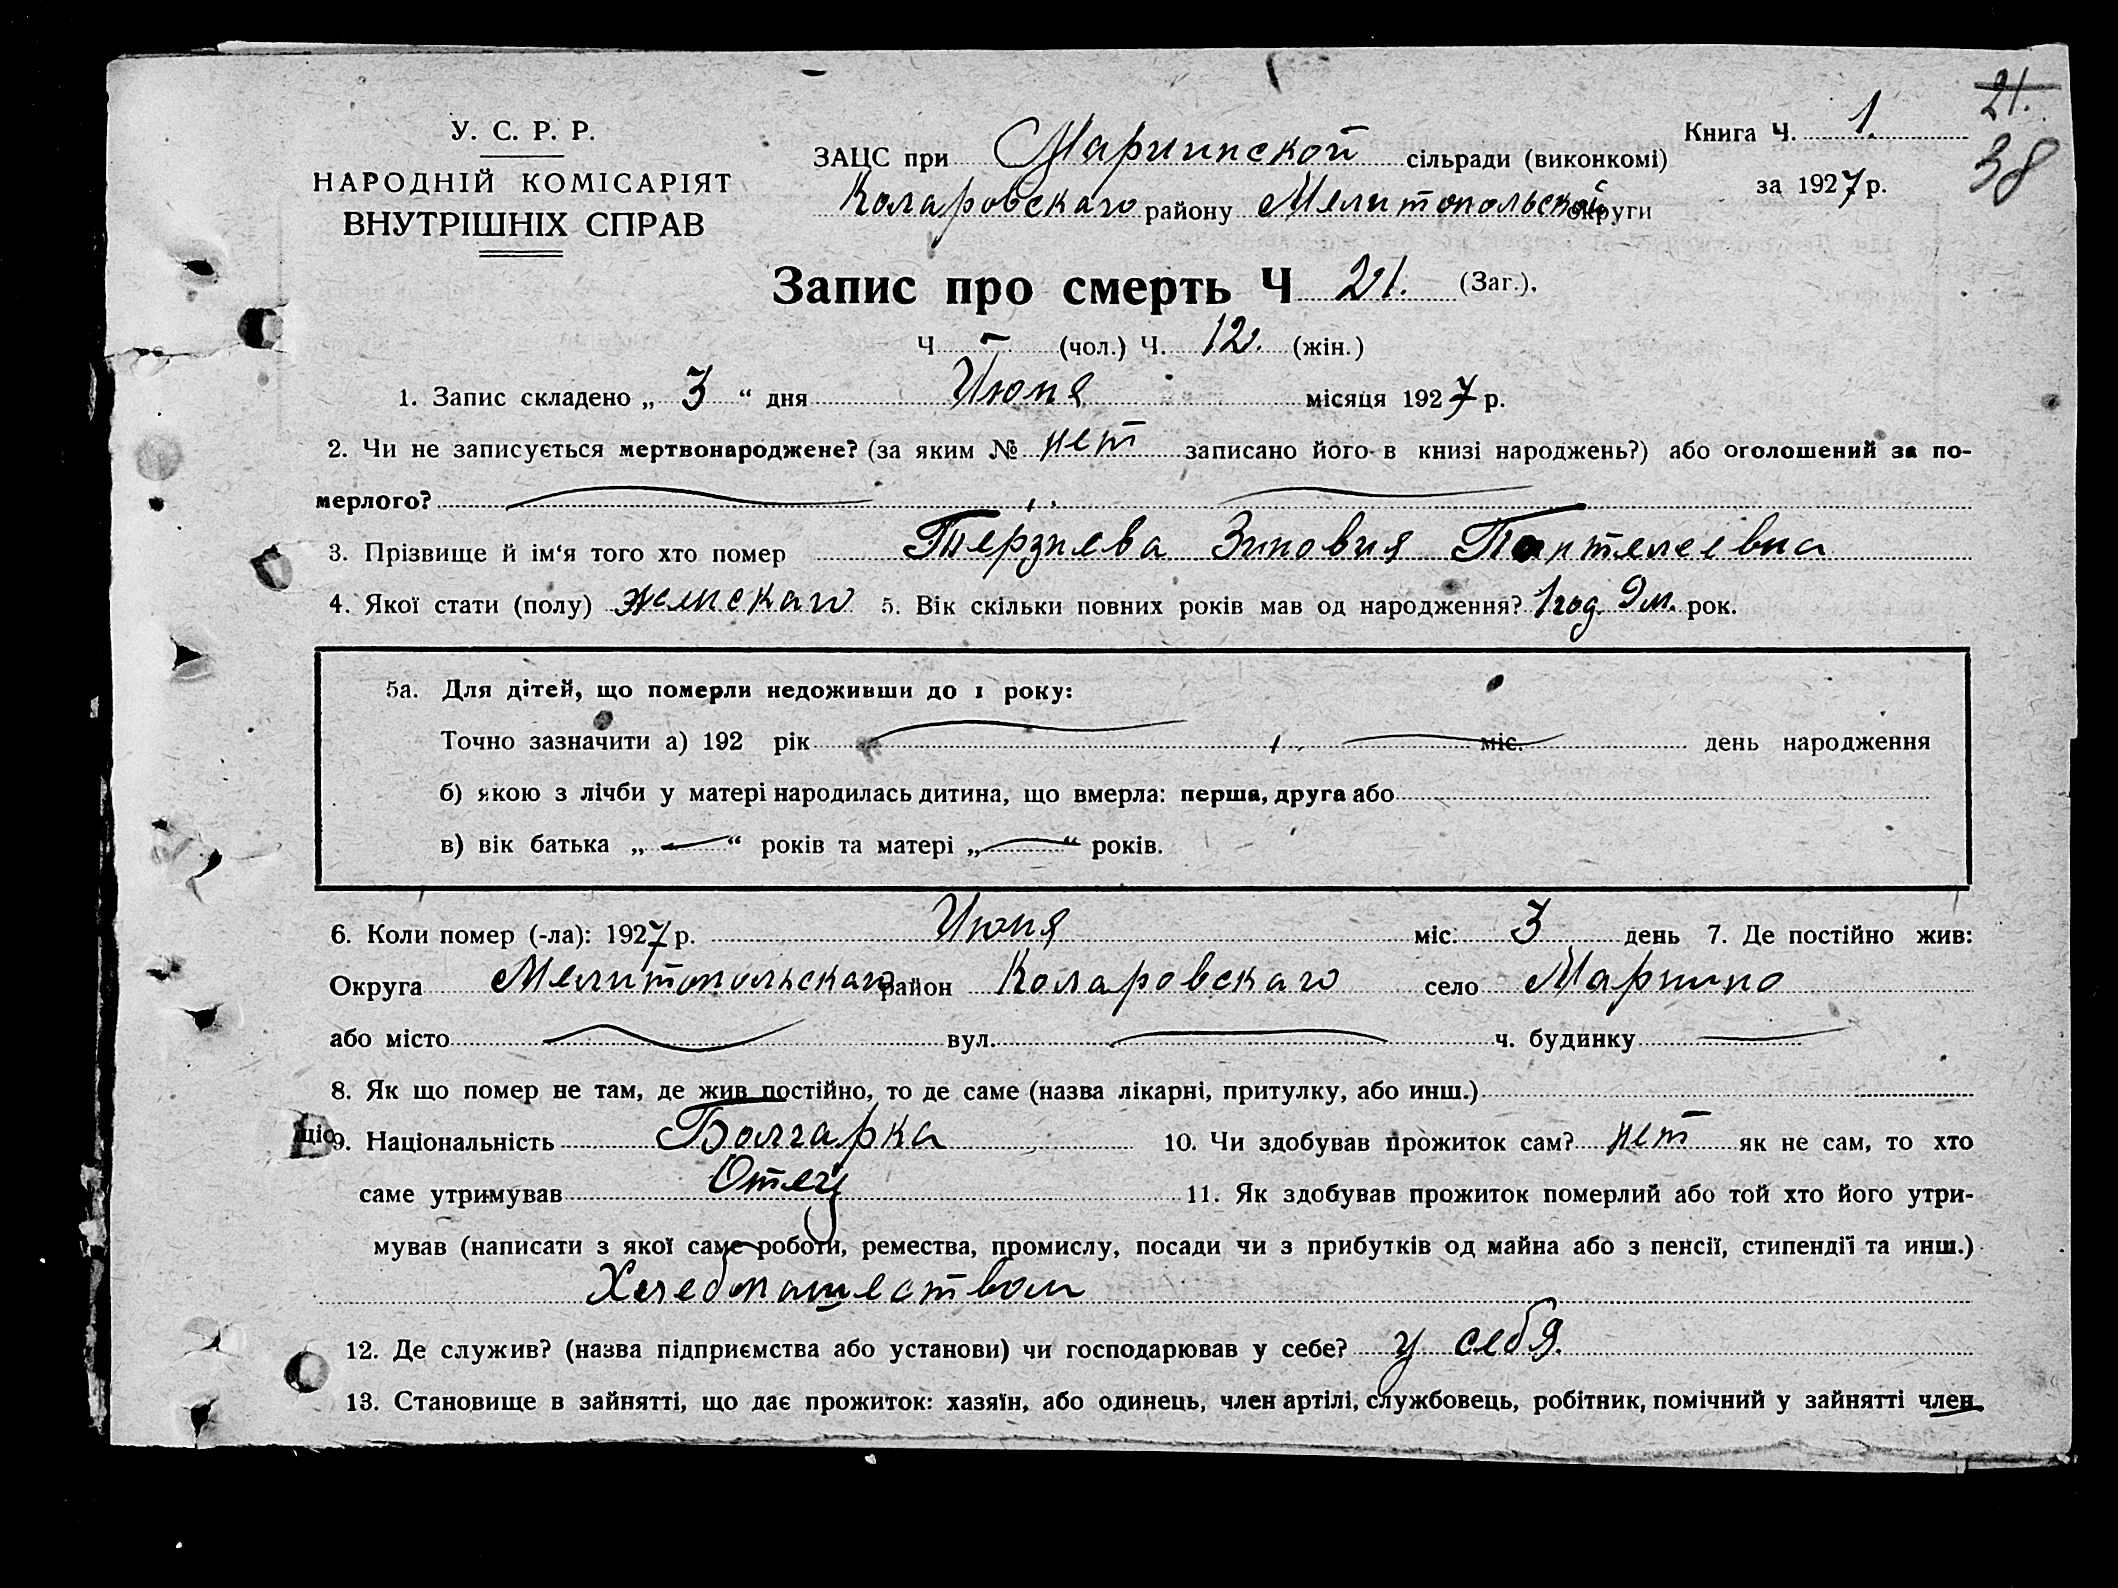 21.
У. С. Р. Р. ЗАЦС при Мариинской сільради (виконкомі) Книга Ч. 1.
38
НАРОДНІЙ КОМІСАРІЯТ Коларовскаго району Мелитопольской округи за 1927 р.
ВНУТРІШНІХ СПРАВ
Запис про смерть Ч 21. (Заг.).
Ч — (чол.) Ч. 12. (жін.)
1. Запис складено „ 3 “ дня Июня місяця 1927 р.
2. Чи не записується мертвонароджене? (за яким № нет записано його в книзі народжень?) або оголошений за по-
мерлого?
3. Прізвище й ім‘я того хто помер Терзиева Зиновия Пантелеевна
4. Якої стати (полу) женскаго 5. Вік скільки повних років мав од народження? 1 год. 9 м. рок.
5а. Для дітей, що померли недоживши до 1 року:
Точно зазначити а) 192 рік міс. день народження
б) якою з лічби у матері народилась дитина, що вмерла: перша, друга або
в) вік батька „ — “ років та матері „ — “ років.
6. Коли помер (-ла): 1927 р. Июня міс. 3 день 7. Де постійно жив:
Округа Мелитопольскаго район Коларовскаго село Мариино
або місто вул. ч. будинку
8. Як що помер не там, де жив постійно, то де саме (назва лікарні, притулку, або инш.)
ціо 9. Національність Болгарка 10. Чи здобував прожиток сам? нет як не сам, то хто
саме утримував Отец 11. Як здобував прожиток померлий або той хто його утри-
мував (написати з якої саме роботи, ремества, промислу, посади чи з прибутків од майна або з пенсії, стипендії та инш.)
Хлебопашеством
12. Де служив? (назва підприємства або установи) чи господарював у себе? у себя.
13. Становище в зайнятті, що дає прожиток: хазяїн, або одинець, член артілі, службовець, робітник, помічний у зайнятті член